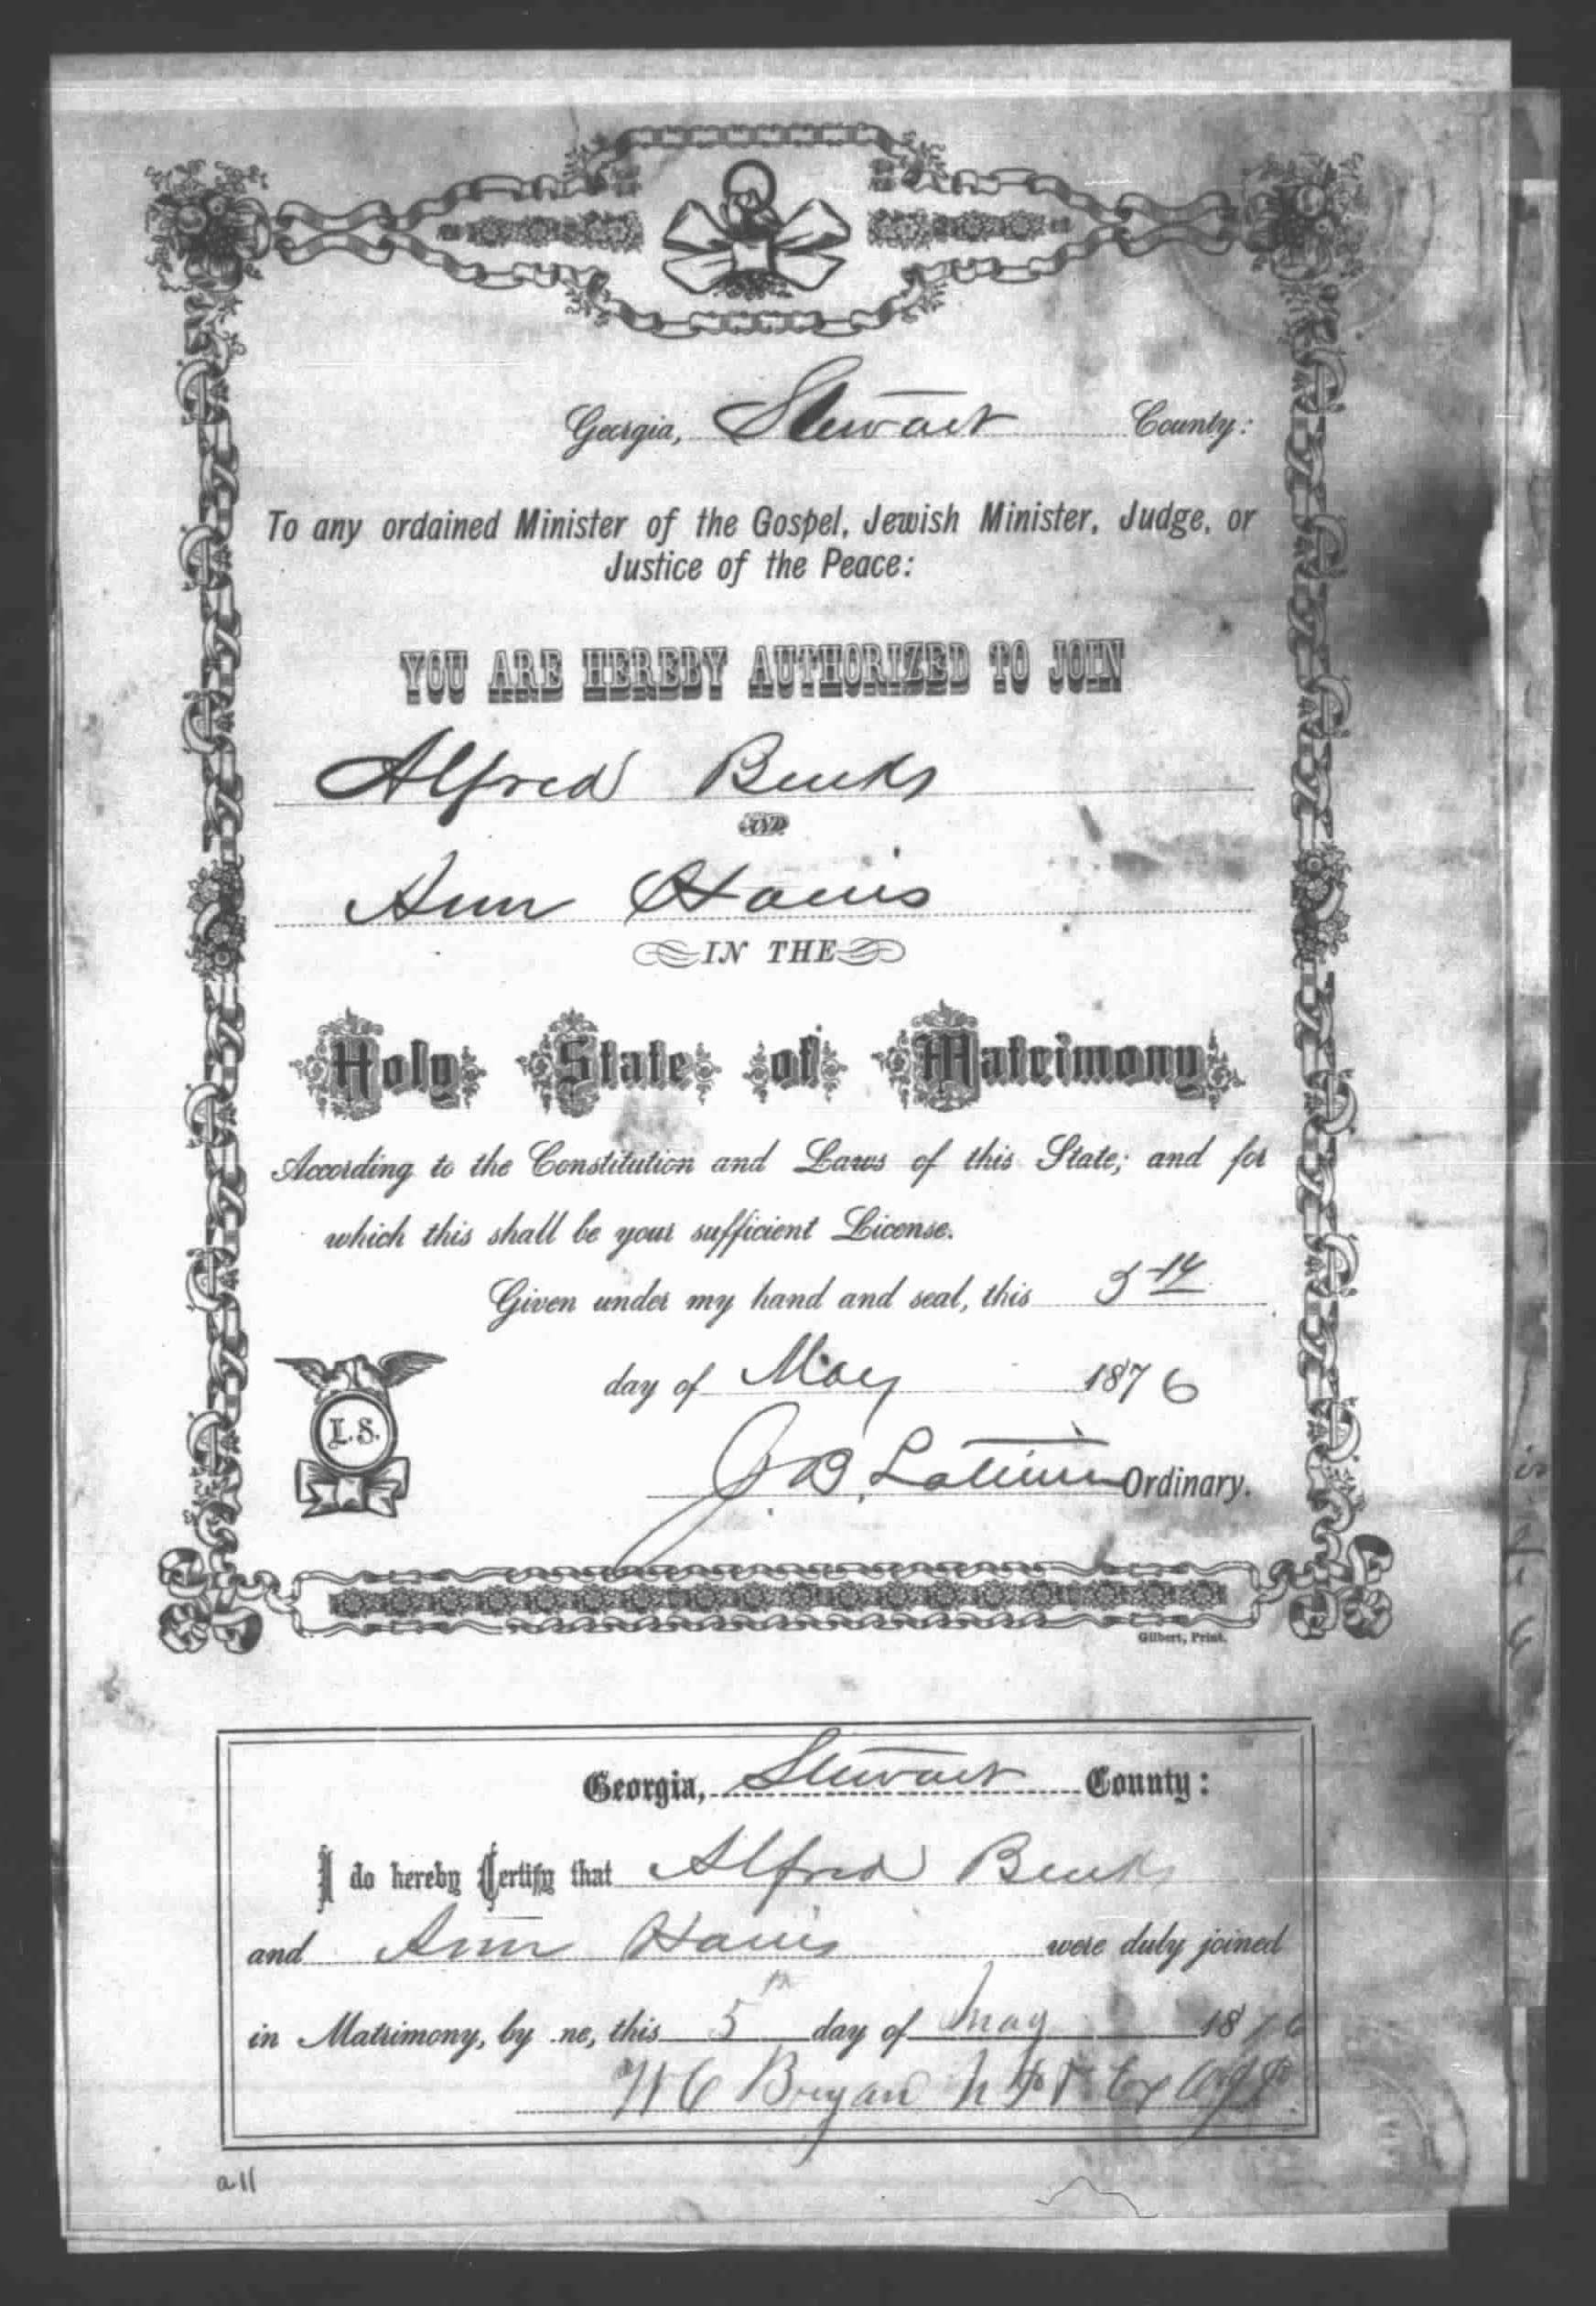 Georgia, Stewart County:
To any ordained Minister of the Gospel, Jewish Minister, Judge, or
Justice of the Peace:
YOU ARE HEREBY AUTHORIZED TO JOIN
Alfred
AND
Ann Harris
IN THE
Holy State of Matrimony
According to the Constitution and Laws of this State; and for
which this shall be your sufficient License.
Given under my hand and seal, this 5th
day of May 1876
L.S.
J B. Latimer Ordinary.
Gilbert, Print.
Georgia, Stewart County:
I do hereby Certify that Alfred
and Ann Harris were duly joined
in Matrimony, by me, this 5th day of May 1876
W C Bryan N P & Ex Off J P
all